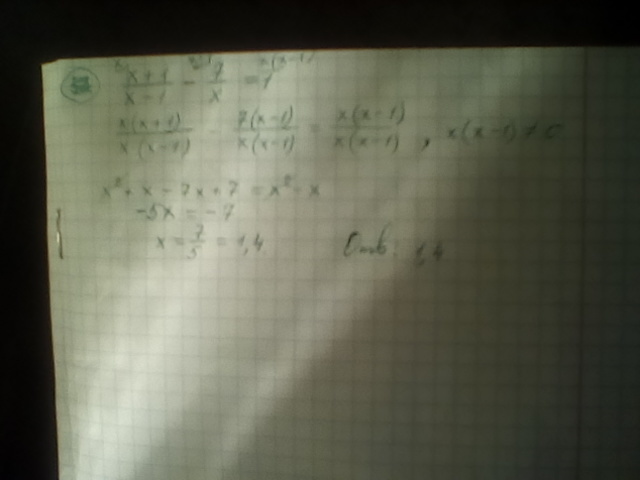 x+1/x-1 - 7/x = 1
x(x+1)/x(x-1) - 7(x-1)/x(x-1) = x(x-1)/x(x-1) , x(x-1) ≠ 0
x² + x - 7x + 7 = x² - x
-5x = -7
x = 7/5 = 1,4 Отв: 1,4